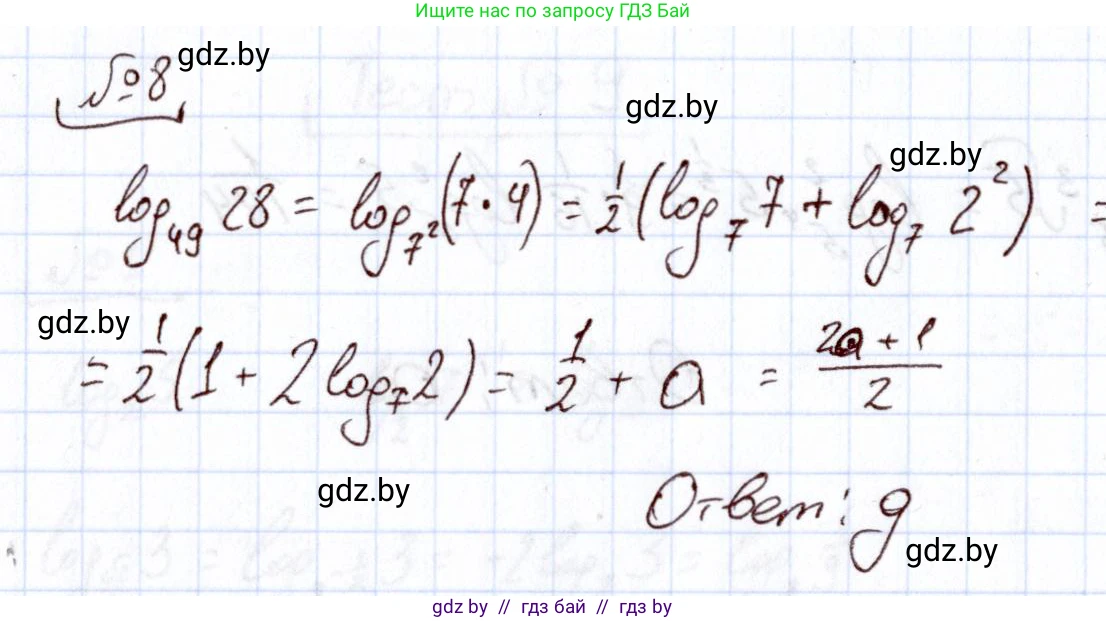 Ищите нас по запросу ГДЗ Бай
№8 gdz.by
gdz.by
gdz.by
log₄₉ 28 = log₇² (7 · 4) = 1/2 (log₇ 7 + log₇ 2²) =
gdz.by
= 1/2 (1 + 2 log₇ 2) = 1/2 + a = (2a + 1)/2
gdz.by
Ответ: g
gdz.by
gdz by // гдз бай // гдз by